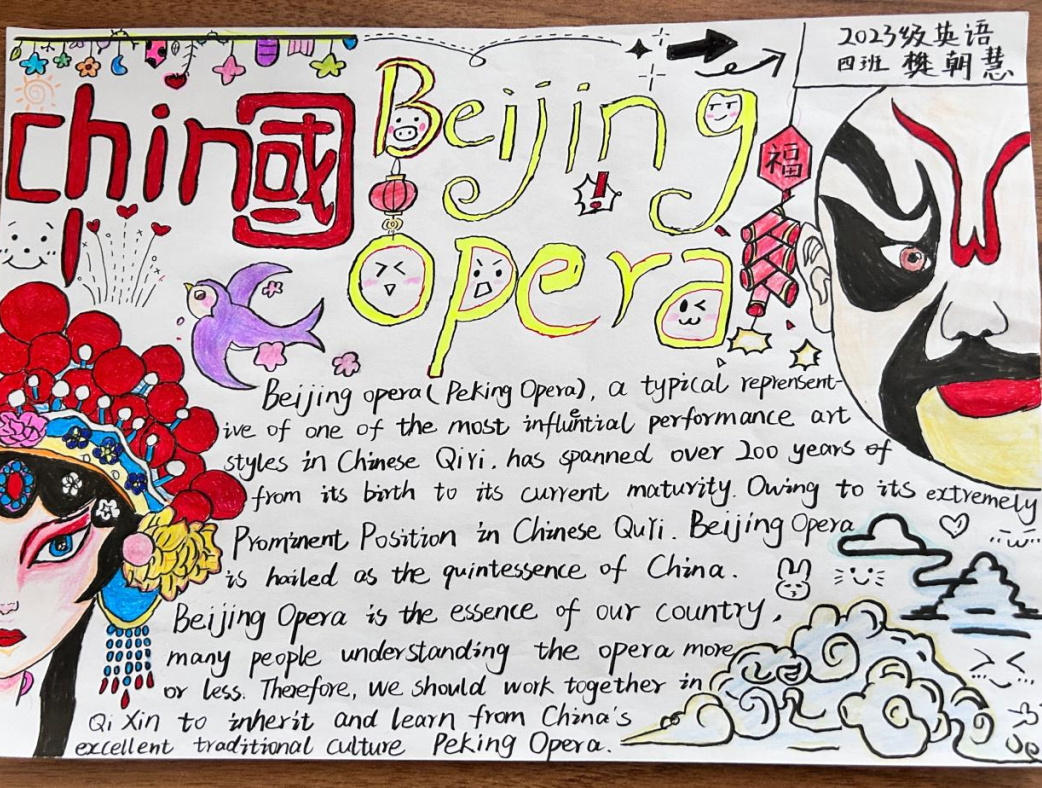 2023级英语
四班 樊朝慧
chin國
Beijing
opera
福
Beijing opera(Peking Opera), a typical reprensent-
ive of one of the most influintial performance art
styles in Chinese QiYi. has spanned over 200 years of
from its birth to its current maturity. Owing to its extremely
Prominent Position in Chinese QuYi. Beijing Opera
is hailed as the quintessence of China.
Beijing Opera is the essence of our country,
many people understanding the opera more
or less. Therefore, we should work together in
Qi Xin to inherit and learn from China's
excellent traditional culture Peking Opera.